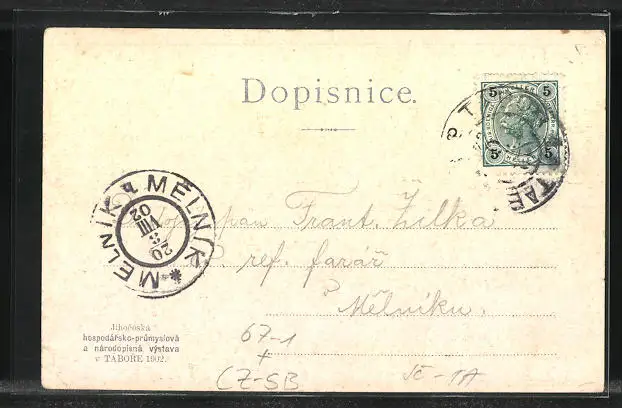 Dopisnice.
5 5
5 5
HELLER
TAB
MĚLNÍK * MELNIK
20
3
VIII
02
pan Frant. Žilka
ref. farář
Mělníku.
Jihočeská
hospodářsko-průmyslová
a národopisná výstava
v TÁBOŘE 1902.
67-1
+
CZ-SB